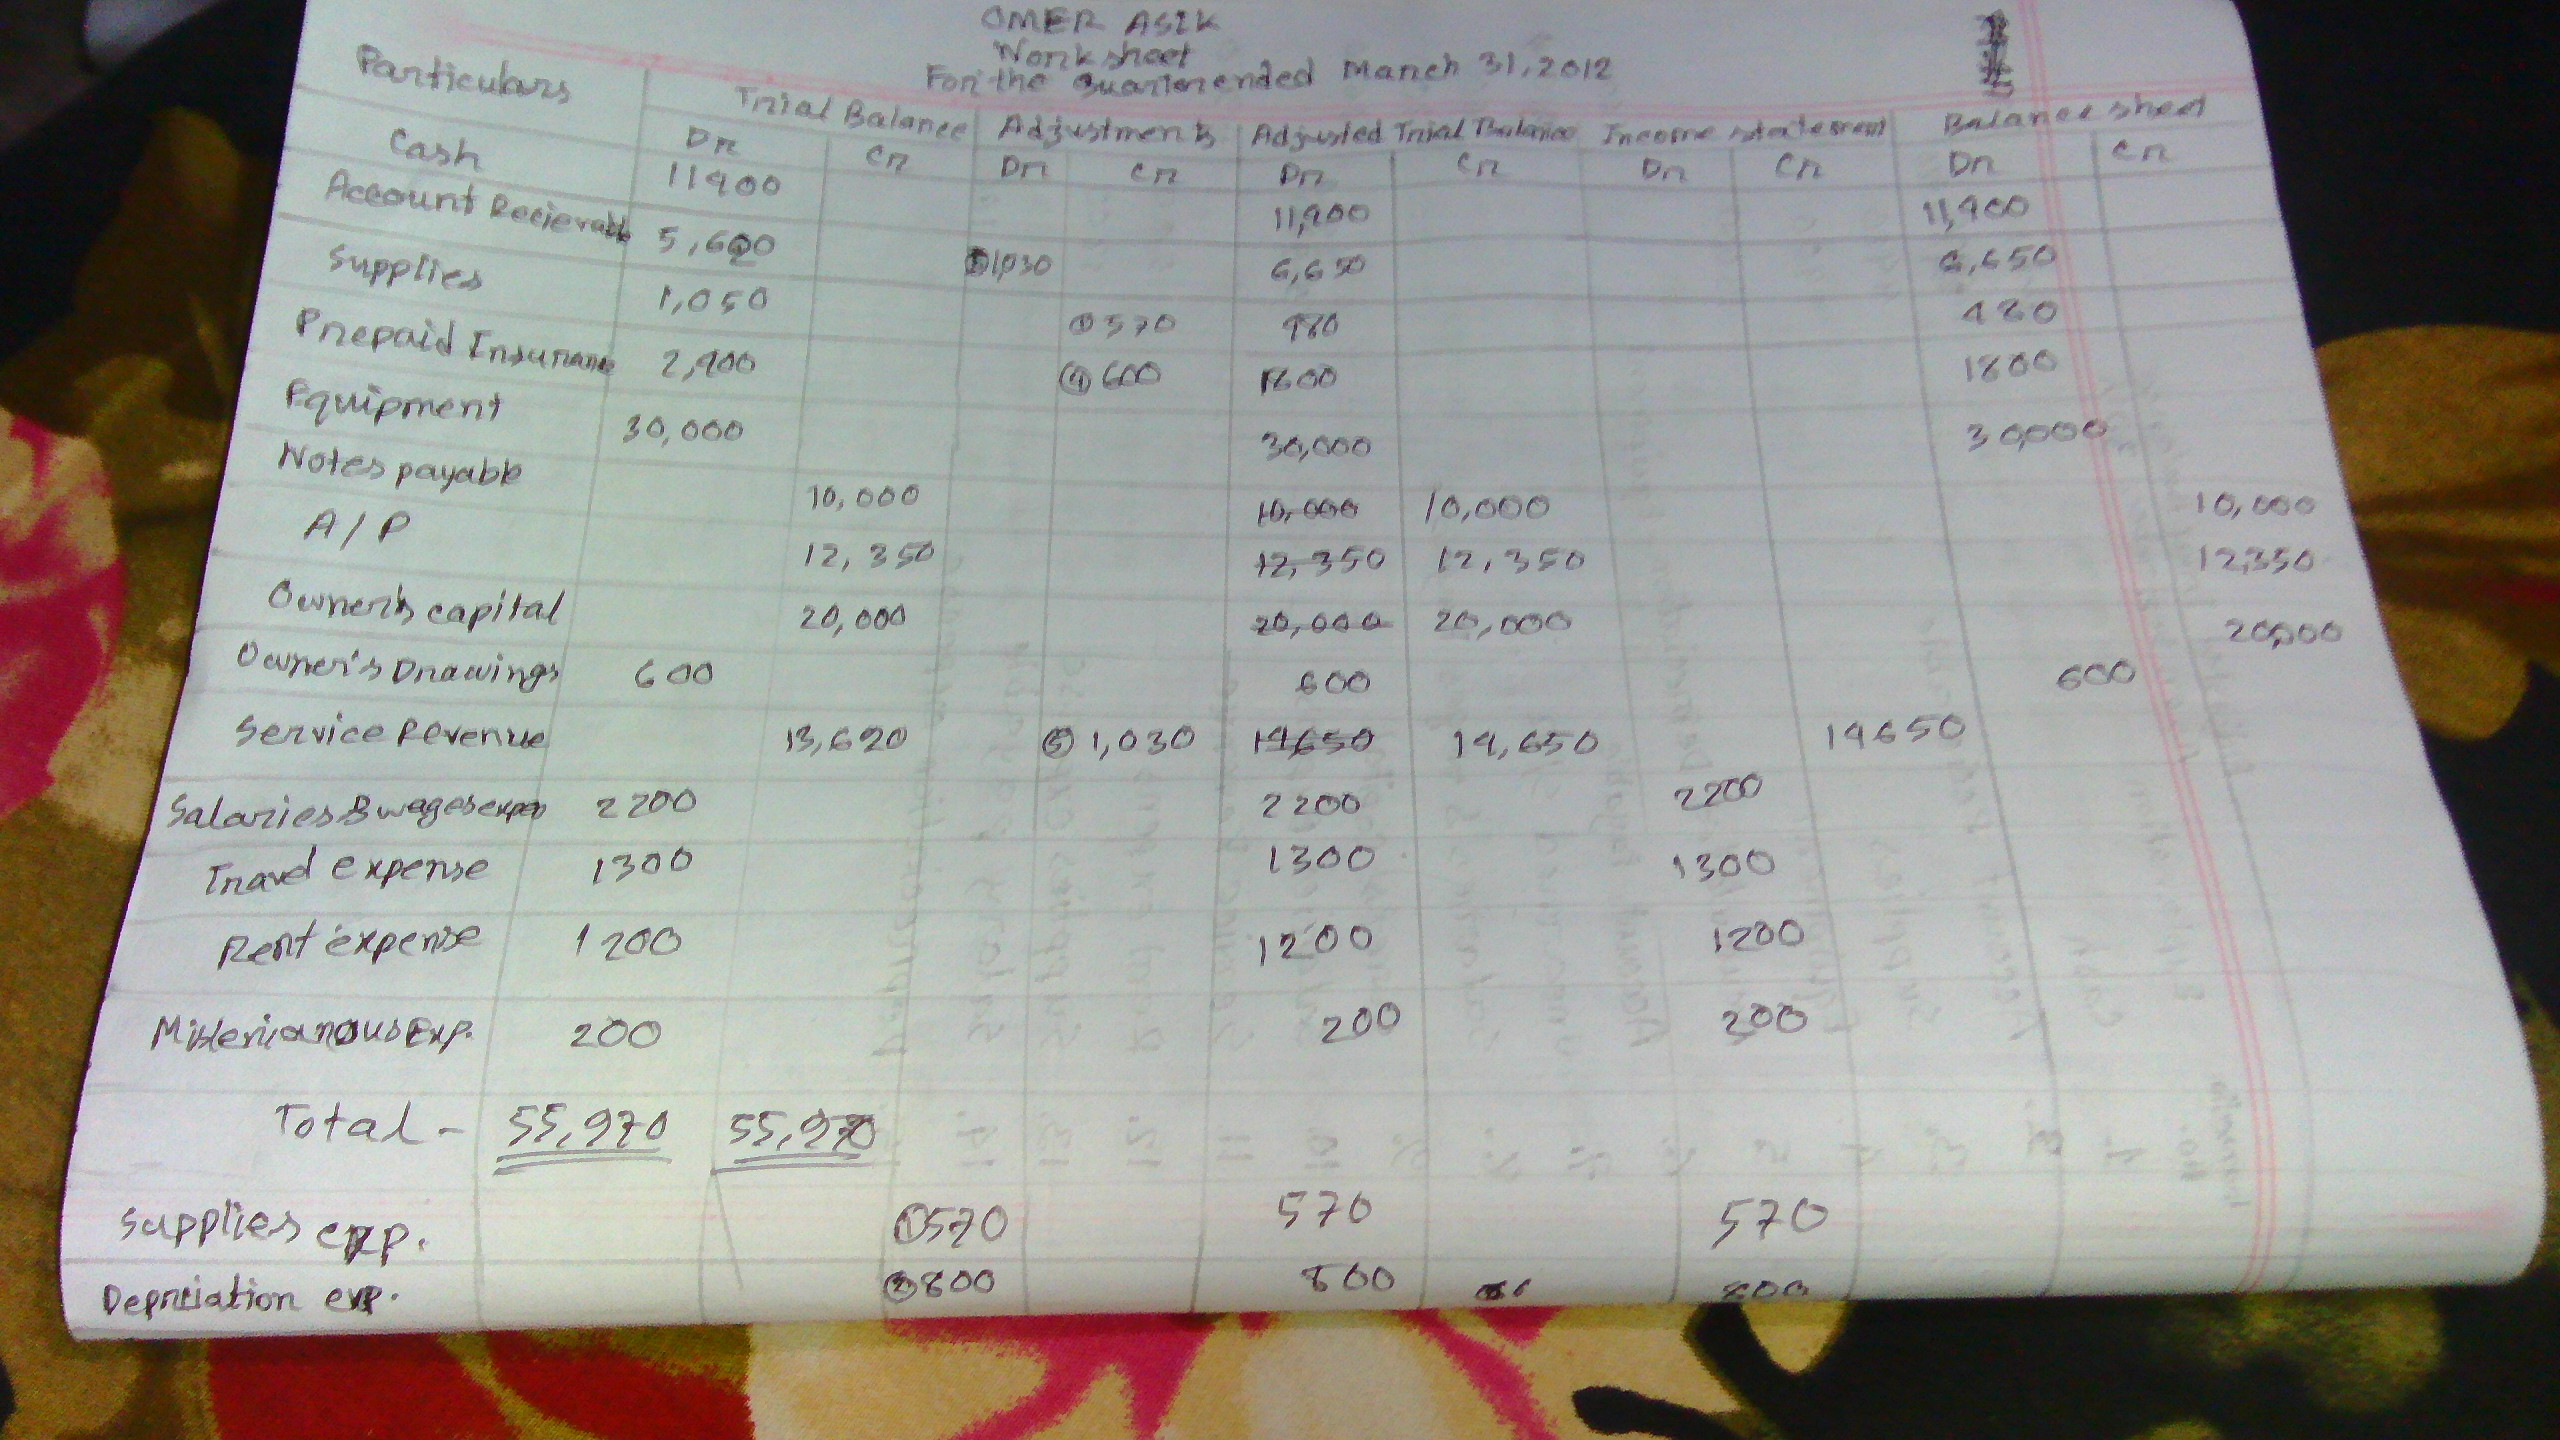 OMER ASIK
Worksheet
For the Quarter ended March 31, 2012
Particulars Trial Balance Adjustments Adjusted Trial Balance Income statement Balance sheet
Dr Cr Dr Cr Dr Cr Dr Cr Dr Cr
Cash 11400 11,400 11,400
Account Recievable 5,620 ⑤1,030 6,650 6,650
Supplies 1,050 ①570 480 480
Prepaid Insurance 2,400 ④600 1800 1800
Equipment 30,000 30,000 30,000
Notes payable 10,000 10,000 10,000 10,000
A/P 12,350 12,350 12,350 12,350
Owner's capital 20,000 20,000 20,000 20,000
Owner's Drawings 600 600 600
Service Revenue 13,620 ⑤1,030 14,650 14,650 14650
Salaries & wages expen 2200 2200 2200
Travel expense 1300 1300 1300
Rent expense 1200 1200 1200
Exp. 200 200 200
Total - 55,970 55,970
Supplies exp. ①570 570 570
Depriciation exp. ②800 800 800